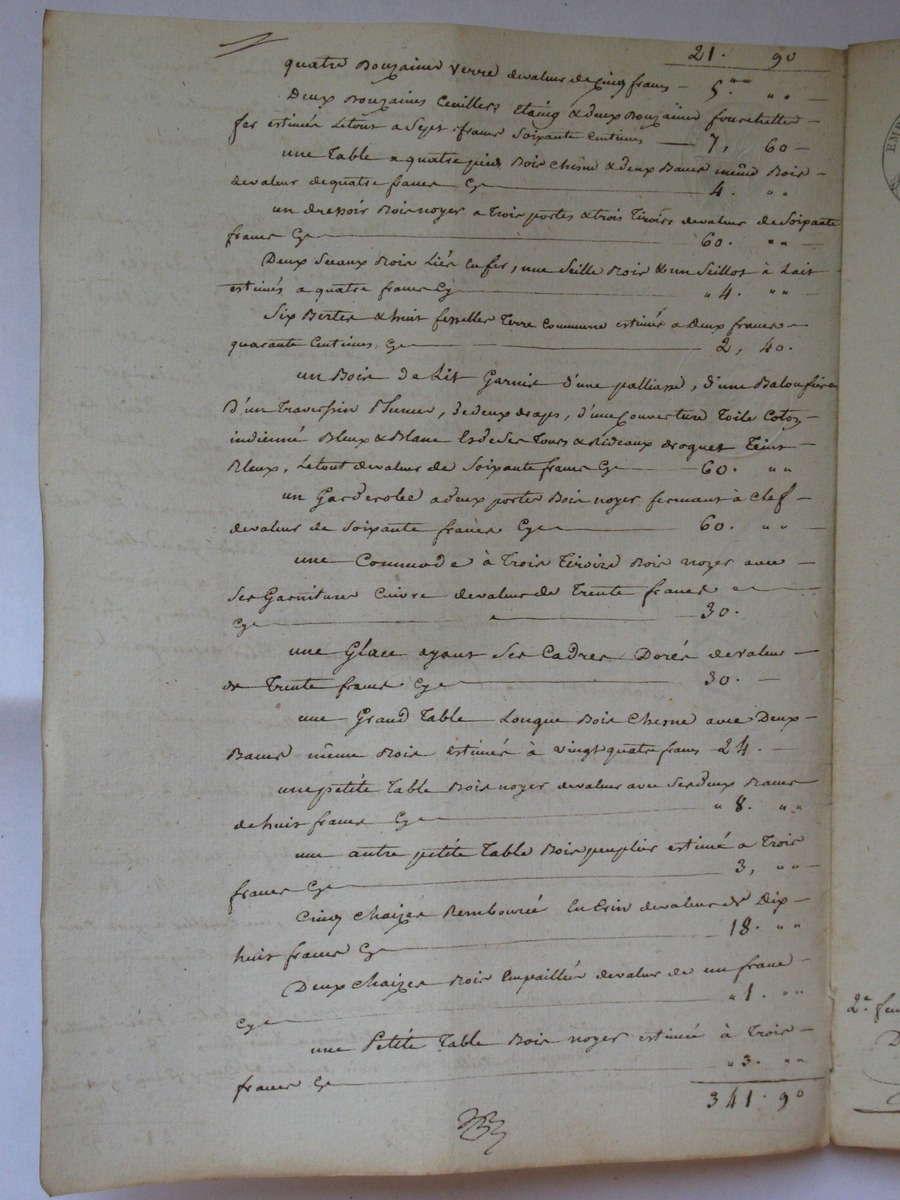 21. 90
quatre Douzaines verre de valeur de cinq francs — 5. " "
Deux Douzaines Cuillers Etaing & deux Douzaines fourchettes
fer estimés Le tout a Sept francs Soixante Centimes — 7, 60 —
une Table a quatre pieds Bois Chesne & deux Bancs même Bois —
de valeur de quatre francs Cy — 4. " "
un dressoir Bois noyer a Trois portes & trois Tiroirs de valeur de Soixante
francs Cy — 60. " " —
Deux Seaux Bois Liés En fer, une Seille Bois & un Seillot à Lait
estimés a quatre francs Cy — " 4. " " —
Six Bertes & huit fesselles Terre Commune estimés a Deux francs
quarante Centimes Cy — 2, 40.
un Bois de Lit Garnie d'une palliasse, d'une
D'un Traversin Plumes, de deux draps, d'une Couverture Toile Coton —
indienné Bleux & Blanc Et de Ses Tours & Rideaux droguet Teint —
Bleux, Le tout de valeur de Soixante francs Cy — 60. " "
un Garderobe a deux portes Bois noyer fermant à Clef —
de valeur de Soixante francs Cy — 60. " " —
une Commode à Trois Tiroirs Bois noyer avec —
Ses Garnitures Cuivre de valeur de Trente francs —
Cy — 30.
une Glace ayant Ses Cadres Dorés de valeur —
de Trente francs Cy — 30. —
une Grand Table Longue Bois Chesne avec Deux —
Bancs même Bois estimés à vingt quatre francs — 24. —
une petite Table Bois noyer de valeur avec Ses deux Bancs
de huit francs Cy — " 8. " "
une autre petite Table Bois peuplier estimé a Trois
francs Cy — 3, " " —
Cinq Chaizes Rembourée En Crin de valeur de Dix —
huit francs Cy — 18. " "
Deux Chaizes Bois Empaillée de valeur de un franc —
Cy — " 1. " "
une Petite Table Bois noyer estimée à Trois —
francs Cy — " 3. " "
341. 90
2e